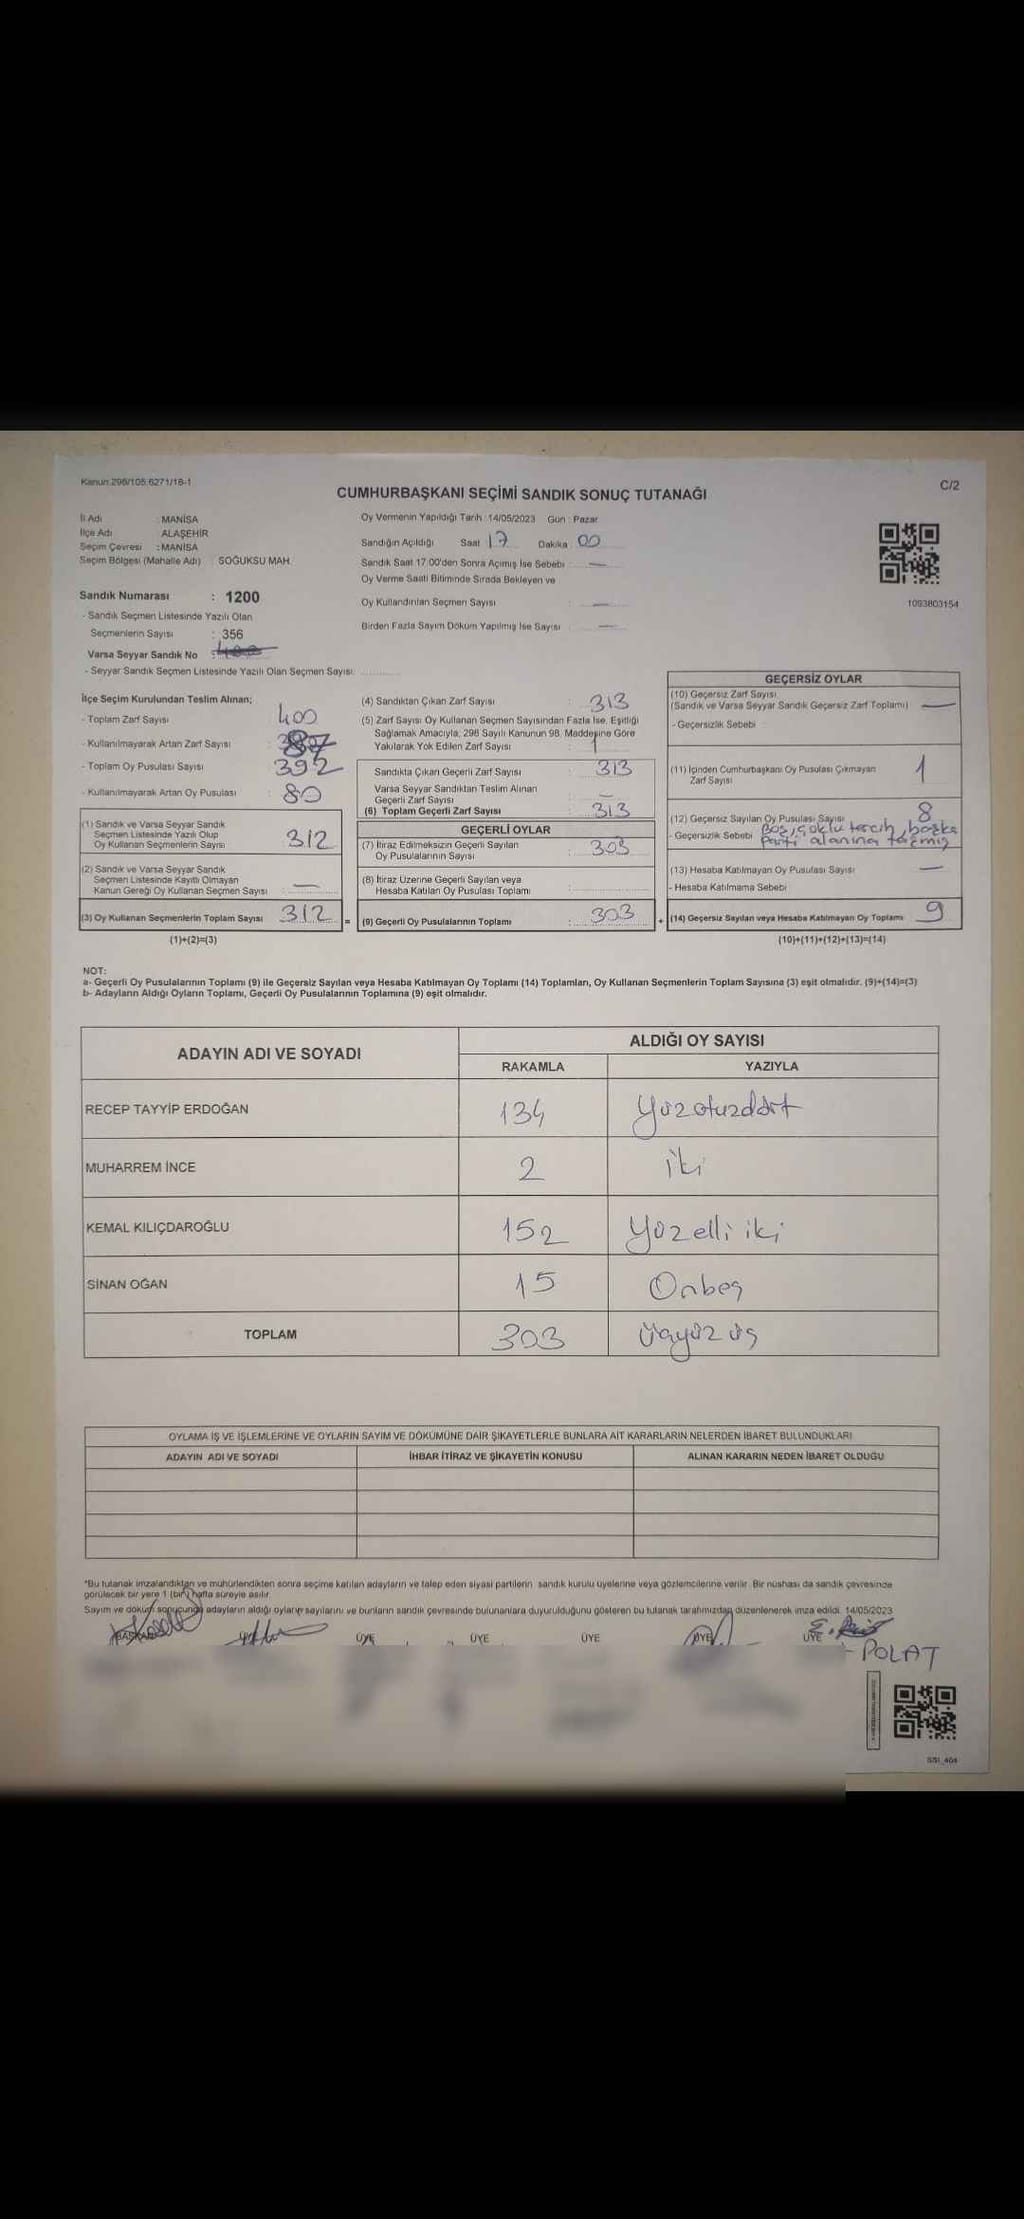 Kanun:298/105 6271/18-1
C/2
CUMHURBAŞKANI SEÇİMİ SANDIK SONUÇ TUTANAĞI
İl Adı : MANİSA
İlçe Adı : ALAŞEHİR
Seçim Çevresi : MANİSA
Seçim Bölgesi (Mahalle Adı) : SOĞUKSU MAH.
Oy Vermenin Yapıldığı Tarih :14/05/2023 Gün : Pazar
Sandığın Açıldığı Saat 17 Dakika 00
Sandık Saat 17.00'den Sonra Açımış İse Sebebi : —
Oy Verme Saati Bitiminde Sırada Bekleyen ve
Oy Kullandırılan Seçmen Sayısı : —
Birden Fazla Sayım Döküm Yapılmış İse Sayısı : —
1093803154
Sandık Numarası : 1200
- Sandık Seçmen Listesinde Yazılı Olan
Seçmenlerin Sayısı : 356
Varsa Seyyar Sandık No :
- Seyyar Sandık Seçmen Listesinde Yazılı Olan Seçmen Sayısı:
İlçe Seçim Kurulundan Teslim Alınan;
- Toplam Zarf Sayısı : 400
- Kullanılmayarak Artan Zarf Sayısı : 87
- Toplam Oy Pusulası Sayısı : 392
- Kullanılmayarak Artan Oy Pusulası : 80
(1) Sandık ve Varsa Seyyar Sandık
Seçmen Listesinde Yazılı Olup
Oy Kullanan Seçmenlerin Sayısı : 312
(2) Sandık ve Varsa Seyyar Sandık
Seçmen Listesinde Kayıtlı Olmayan
Kanun Gereği Oy Kullanan Seçmen Sayısı : —
(3) Oy Kullanan Seçmenlerin Toplam Sayısı : 312 =
(1)+(2)=(3)
(4) Sandıktan Çıkan Zarf Sayısı : 313
(5) Zarf Sayısı Oy Kullanan Seçmen Sayısından Fazla İse, Eşitliği
Sağlamak Amacıyla; 298 Sayılı Kanunun 98. Maddesine Göre
Yakılarak Yok Edilen Zarf Sayısı : 1
Sandıkta Çıkan Geçerli Zarf Sayısı : 313
Varsa Seyyar Sandıktan Teslim Alınan
Geçerli Zarf Sayısı : —
(6) Toplam Geçerli Zarf Sayısı : 313
GEÇERLİ OYLAR
(7) İtiraz Edilmeksizin Geçerli Sayılan
Oy Pusulalarının Sayısı : 303
(8) İtiraz Üzerine Geçerli Sayılan veya
Hesaba Katılan Oy Pusulası Toplamı :
(9) Geçerli Oy Pusulalarının Toplamı : 303 +
GEÇERSİZ OYLAR
(10) Geçersiz Zarf Sayısı
(Sandık ve Varsa Seyyar Sandık Geçersiz Zarf Toplamı) —
- Geçersizlik Sebebi :
(11) İçinden Cumhurbaşkanı Oy Pusulası Çıkmayan
Zarf Sayısı 1
(12) Geçersiz Sayılan Oy Pusulası Sayısı : 8
- Geçersizlik Sebebi Boş, çoklu tercih, başka
Parti alanına taşmış
(13) Hesaba Katılmayan Oy Pusulası Sayısı : —
- Hesaba Katılmama Sebebi
(14) Geçersiz Sayılan veya Hesaba Katılmayan Oy Toplamı : 9
(10)+(11)+(12)+(13)=(14)
NOT:
a- Geçerli Oy Pusulalarının Toplamı (9) ile Geçersiz Sayılan veya Hesaba Katılmayan Oy Toplamı (14) Toplamları, Oy Kullanan Seçmenlerin Toplam Sayısına (3) eşit olmalıdır. (9)+(14)=(3)
b- Adayların Aldığı Oyların Toplamı, Geçerli Oy Pusulalarının Toplamına (9) eşit olmalıdır.
ADAYIN ADI VE SOYADI
ALDIĞI OY SAYISI
RAKAMLA YAZIYLA
RECEP TAYYİP ERDOĞAN 134 Yüzotuzdört
MUHARREM İNCE 2 iki
KEMAL KILIÇDAROĞLU 152 Yüzelli iki
SİNAN OĞAN 15 Onbeş
TOPLAM 303 üçyüz üç
OYLAMA İŞ VE İŞLEMLERİNE VE OYLARIN SAYIM VE DÖKÜMÜNE DAİR ŞİKAYETLERLE BUNLARA AİT KARARLARIN NELERDEN İBARET BULUNDUKLARI
ADAYIN ADI VE SOYADI İHBAR İTİRAZ VE ŞİKAYETİN KONUSU ALINAN KARARIN NEDEN İBARET OLDUĞU
*Bu tutanak imzalandıktan ve mühürlendikten sonra seçime katılan adayların ve talep eden siyasi partilerin sandık kurulu üyelerine veya gözlemcilerine verilir. Bir nüshası da sandık çevresinde
görülecek bir yere 1 (bir) hafta süreyle asılır.
Sayım ve döküm sonucunda adayların aldığı oyların sayılarını ve bunların sandık çevresinde bulunanlara duyurulduğunu gösteren bu tutanak tarafımızdan düzenlenerek imza edildi. 14/05/2023
BAŞKAN ÜYE ÜYE ÜYE ÜYE ÜYE
POLAT
SSI_404